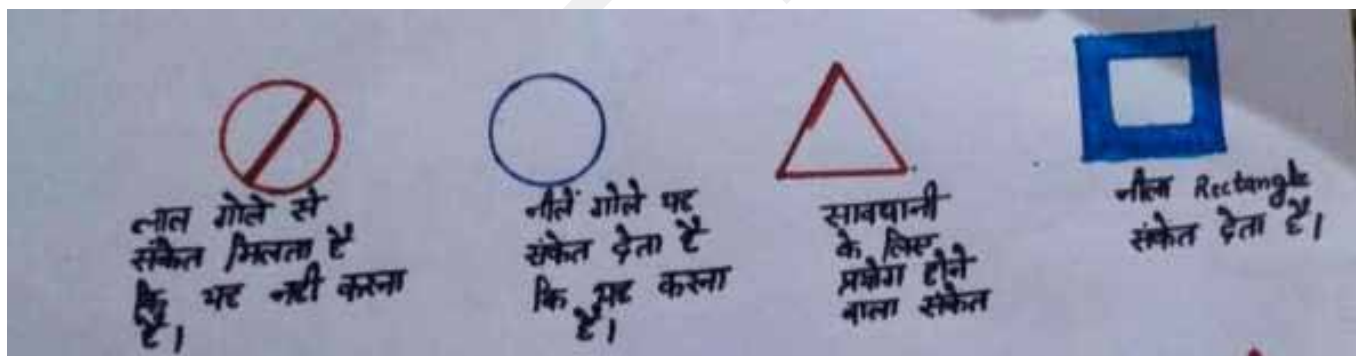 लाल गोले से
संकेत मिलता है
कि यह नही करना
है।
नीलें गोले यह
संकेत देता है
कि यह करना
है।
सावधानी
के लिए
प्रयोग होने
वाला संकेत
नीला Rectangle
संकेत देता है।